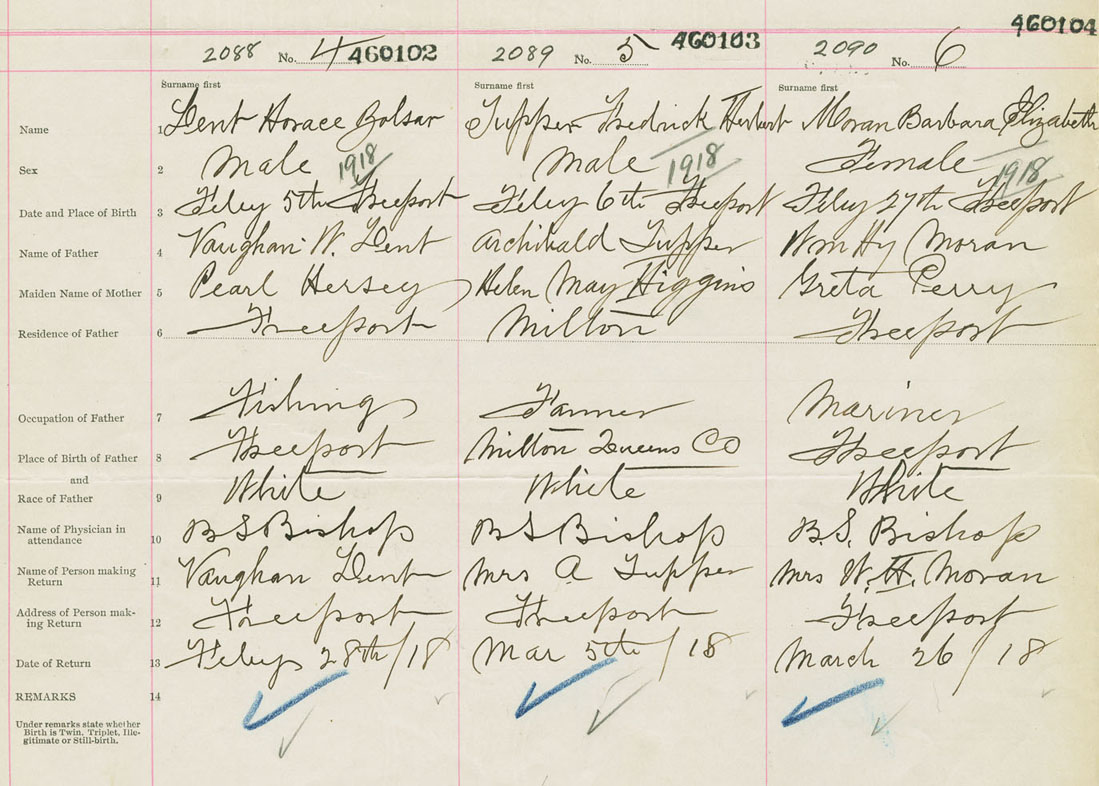 460104
2088 No. 4 460102 2089 No. 5 460103 2090 No. 6
Surname first Surname first Surname first
Name 1 Lent Horace Bolsar Tupper Fredrick Herbert Moran Barbara Elizabeth
Sex 2 Male 1918 Male 1918 Female 1918
Date and Place of Birth 3 Feby 5th Freeport Feby 6th Freeport Feby 27th Freeport
Name of Father 4 Vaughan W. Lent Archibald Tupper Wm Hy Moran
Maiden Name of Mother 5 Pearl Hersey Helen May Higgins Greta Perry
Residence of Father 6 Freeport Milton Freeport
Occupation of Father 7 Fishing Farmer Mariner
Place of Birth of Father 8 Freeport Milton Queens Co Freeport
and
Race of Father 9 White White White
Name of Physician in
attendance 10 B S Bishop B S Bishop B. S. Bishop
Name of Person making
Return 11 Vaughan Lent Mrs A Tupper Mrs W. H. Moran
Address of Person mak-
ing Return 12 Freeport Freeport Freeport
Date of Return 13 Feby 28th/18 Mar 5th/18 March 26/18
REMARKS 14
Under remarks state whether
Birth is Twin, Triplet, Ille-
gitimate or Still-birth.